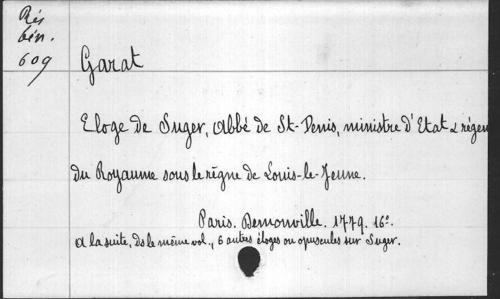 Rés
bén.
609
Garat
Eloge de Suger, Abbé de St-Denis, ministre d'Etat & régen
du Royaume sous le règne de Louis-le-Jeune.
Paris. Demonville. 1779. 16º.
A la suite, ds le même vol., 6 autres éloges ou opuscules sur Suger.